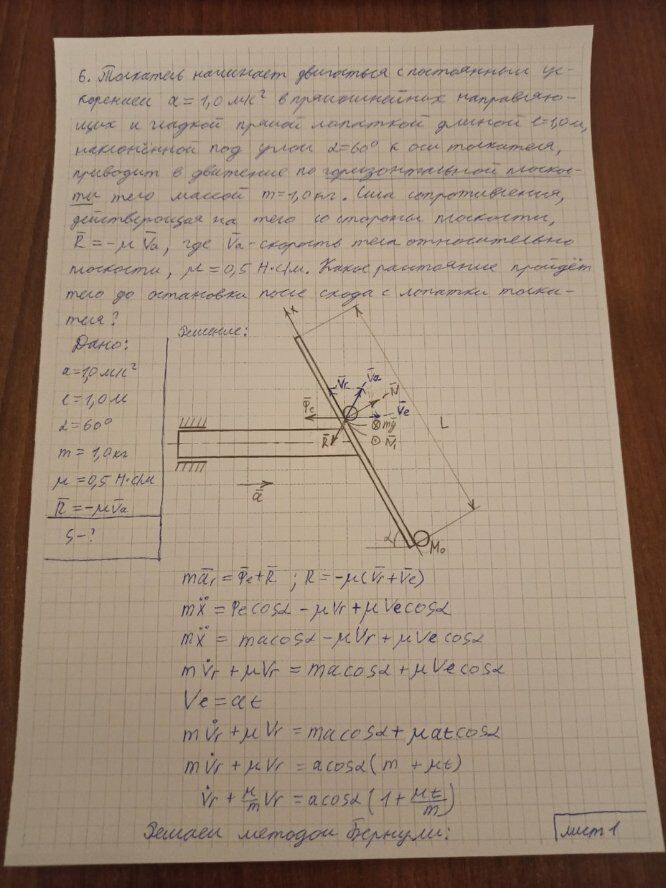 6. Толкатель начинает двигаться с постоянным ус-
корением a = 1,0 м/с² в прямолинейных направляю-
щих и гладкой прямой лопаткой длиной l = 1,0 м,
наклонённой под углом α = 60° к оси толкателя,
приводит в движение по горизонтальной плоскос-
ти тело массой m = 1,0 кг. Сила сопротивления,
действующая на тело со стороны плоскости,
R̄ = -μV̄a, где V̄a - скорость тела относительно
плоскости, μ = 0,5 Н·с/м. Какое расстояние пройдёт
тело до остановки после схода с лопатки толка-
теля?
Дано:
a = 1,0 м/с²
l = 1,0 м
α = 60°
m = 1,0 кг
μ = 0,5 Н·с/м
R̄ = -μV̄a
S - ?
Решение:
x
V̄r
V̄a
N̄
Φ̄e
V̄e
R̄
mḡ
N̄₁
L
ā
α
M₀
mār = Φ̄e + R̄ ; R = -μ(V̄r + V̄e)
mẍ = Φe cosα - μVr + μVe cosα
mẍ = ma cosα - μVr + μVe cosα
mV̇r + μVr = ma cosα + μVe cosα
Ve = at
mV̇r + μVr = ma cosα + μat cosα
mV̇r + μVr = a cosα (m + μt)
V̇r + μ/m Vr = a cosα (1 + μt/m)
Решаем методом Бернули:
лист 1